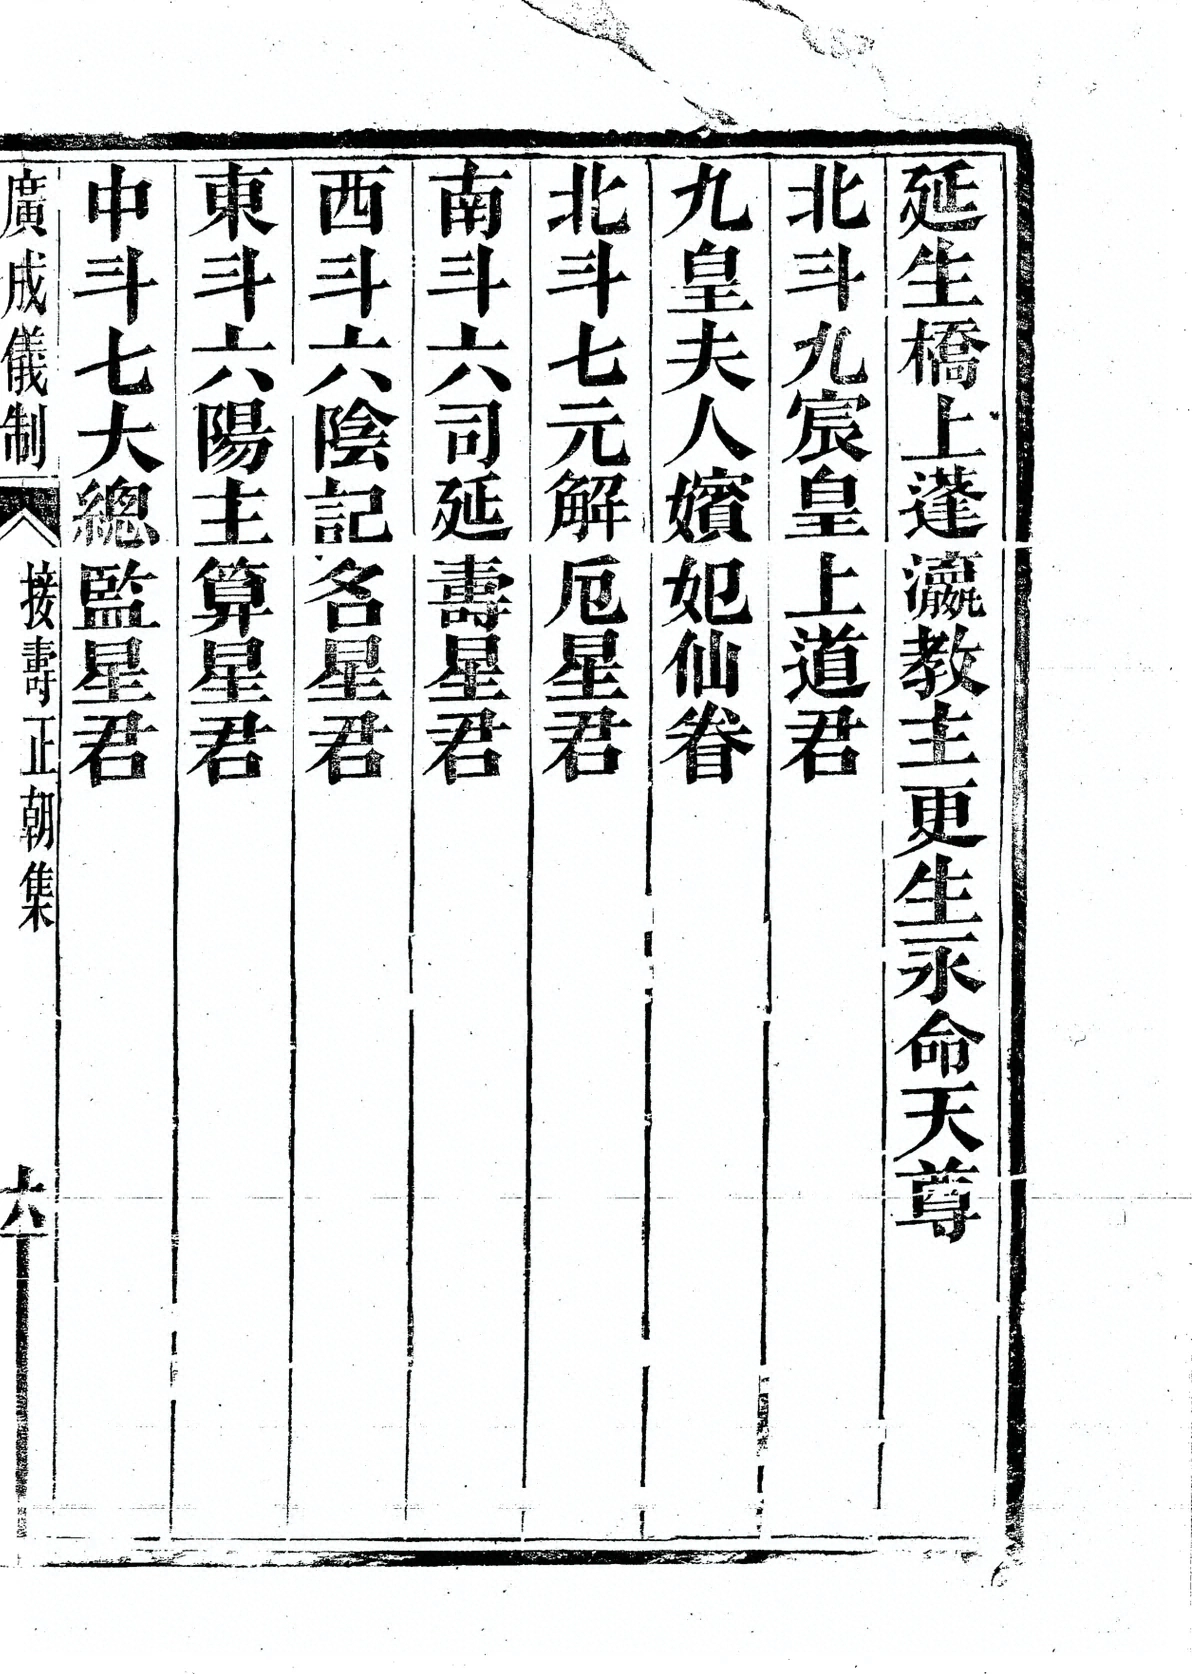 延生橋上蓬瀛教主更生永命天尊
北斗九宸皇上道君
九皇夫人嬪妃仙眷
北斗七元解厄星君
南斗六司延壽星君
西斗六陰記名星君
東斗六陽主算星君
中斗七大總監星君
廣成儀制 接壽正朝集 六